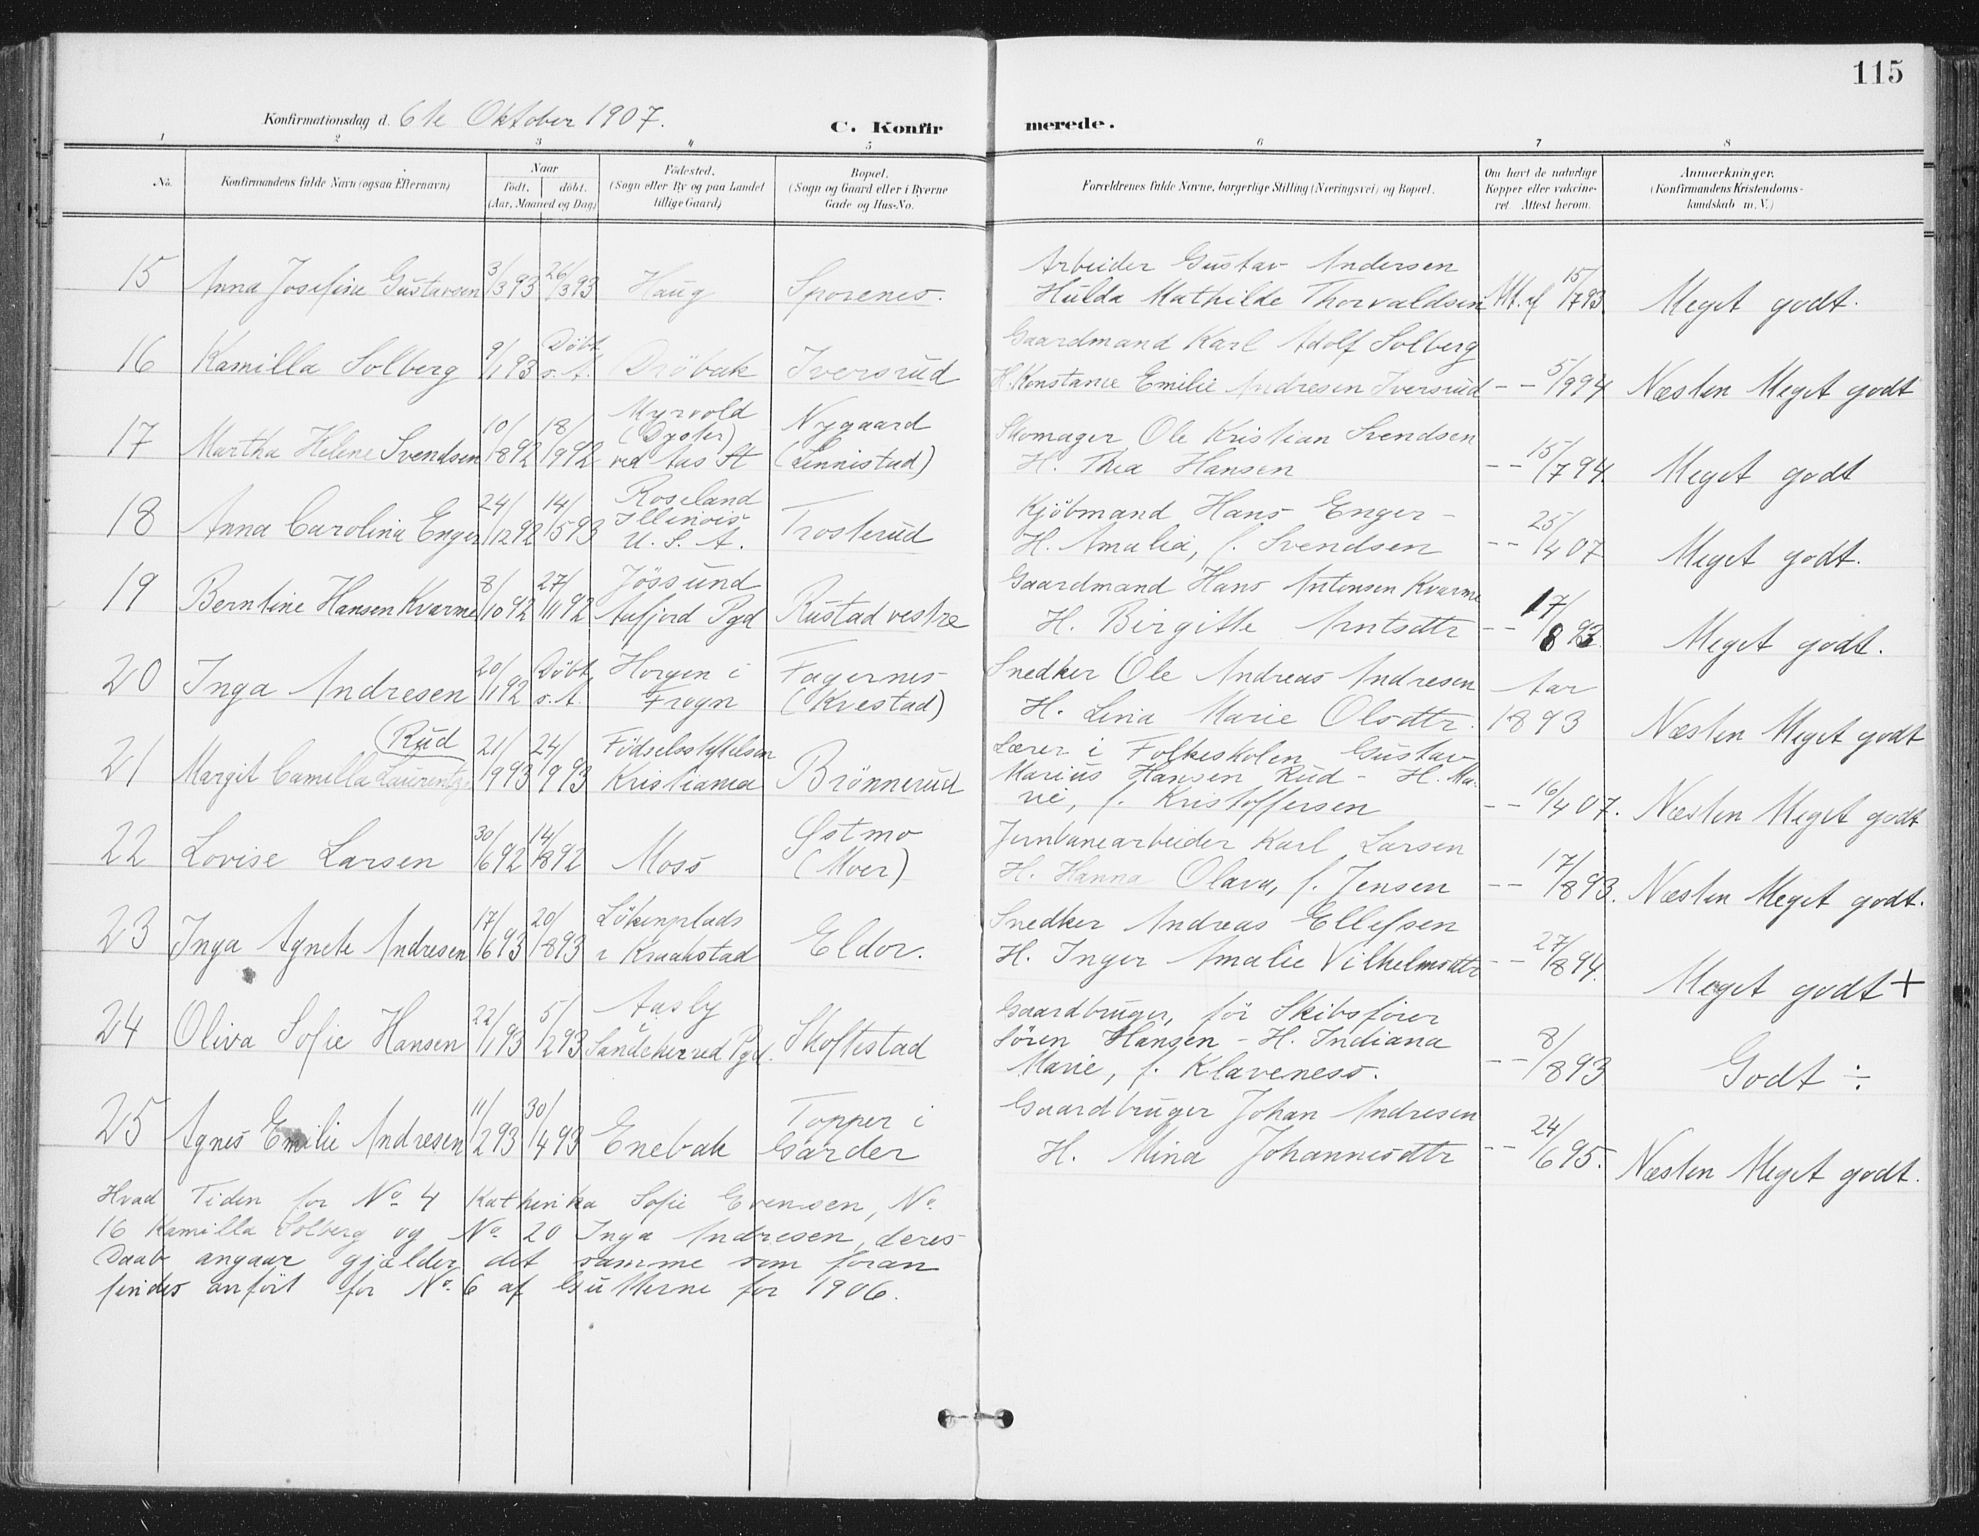 115
Konfirmationsdag d. 6te Oktober 1907.
C. Konfirmerede.
1 2 3 4 5 6 7 8
No.
Konfirmandens fulde Navn (ogsaa Efternavn)
Naar
født. døbt.
(Aar, Maaned og Dag)
Fødested.
(Sogn eller By og paa Landet
tillige Gaard)
Bopæl.
(Sogn og Gaard eller i Byerne
Gade og Hus-No.
Forældrenes fulde Navne, borgerlige Stilling (Næringsvei) og Bopæl.
Om havt de naturlige
Kopper eller vakcine-
ret Attest herom.
Anmærkninger.
(Konfirmandens Kristendoms-
kundskab m. V.)
15 Anna Josefine Gustavsen 3/3 93 26/3 93 Haug Sporenes.
Arbeider Gustav Andersen
Hulda Mathilde Thorvaldsen Att. af 15/7 93. Meget godt.
16 Kamilla Solberg 9/1 93 Døbt s. A. Drøbak Iversrud
Gaardmand Karl Adolf Solberg
H. Konstance Emilie Andresen Iversrud - - 5/9 94 Næsten Meget godt
17 Martha Helene Svendsen 10/8 92 18/9 92
Myrvold
(Dyster)
ved Aas St
Nygaard
(Linnistad)
Skomager Ole Kristian Svendsen
H. Thea Hansen - - 15/7 94. Meget godt
18 Anna Carolina Enger 24/12 92 14/5 93
Roseland
Illinois
U. S. A.
Trosterud
Kjøbmand Hans Enger -
H. Amalia, f. Svendsen - - 25/4 07 Meget godt.
19 Berntine Hansen Kvarme 8/10 92 27/11 92
Jøssund
Aafjord Pgd
Rustad vestre
Gaardmand Hans Antonsen Kvarme
H. Birgitte Arntsdtr - - 17/8 93. Meget godt.
20 Inga Andresen 20/1 92 Døbt s. A.
Horgen i
Frogn
Fagernes
(Kvestad)
Snedker Ole Andreas Andresen Aar
H. Lina Marie Olsdtr. 1893 Næsten Meget godt
(Rud
21 Margit Camilla Laurentze 21/9 93 24/9 93
Fødselsstiftelsen
Kristiania
Brønnerud
Lærer i Folkeskolen Gustav
Marius Hansen Rud - H. Ma-
rie, f. Kristoffersen - - 16/4 07. Næsten Meget godt
22 Lovise Larsen 30/6 92 14/8 92 Moss
Østmo
(Moer)
Jernbanearbeider Karl Larsen
H. Hanna Olava, f. Jensen - - 17/8 93. Næsten Meget godt.
23 Inga Agnete Andresen 17/6 93 20/8 93
Løkenplads
i Kraakstad
Eldor.
Snedker Andreas Ellefsen
H. Inger Amalie Vilhelmsdtr - - 27/8 94. Meget godt +
24 Oliva Sofie Hansen 22/1 93 5/2 93
Aasby
Sandeherred Pgd.
Skoftestad
Gaardbruger, før Skibsfører
Søren Hansen - H. Indiana
Marie, f. Klaveness. - - 8/8 93 Godt ÷
25 Agnes Emilie Andresen 11/2 93 30/4 93 Enebak
Topper i
Garder
Gaardbruger Johan Andresen
H. Mina Johannesdtr - - 24/6 95. Næsten Meget godt.
Hvad Tiden for No 4 Kathinka Sofie Evensen, No
16 Kamilla Solberg og No 20 Inga Andresen, deres
Daab angaar gjælder det samme som foran
findes anført for No 6 af Gutterne for 1906.